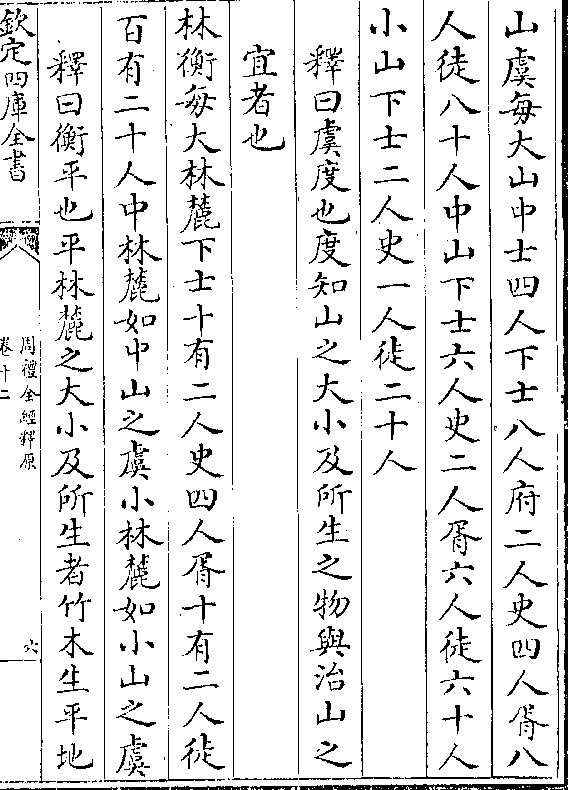 山虞每大山中士四人下士八人府二人史四人胥八
人徒八十人中山下士六人史二人胥六人徒六十人
小山下士二人史一人徒二十人
釋曰虞度也度知山之大小及所生之物與治山之
宜者也
林衡每大林麓下士十有二人史四人胥十有二人徒
百有二十人中林麓如中山之虞小林麓如小山之虞
釋曰衡平也平林麓之大小及所生者竹木生平地
欽定四庫全書
周禮全經釋原
卷十二
六